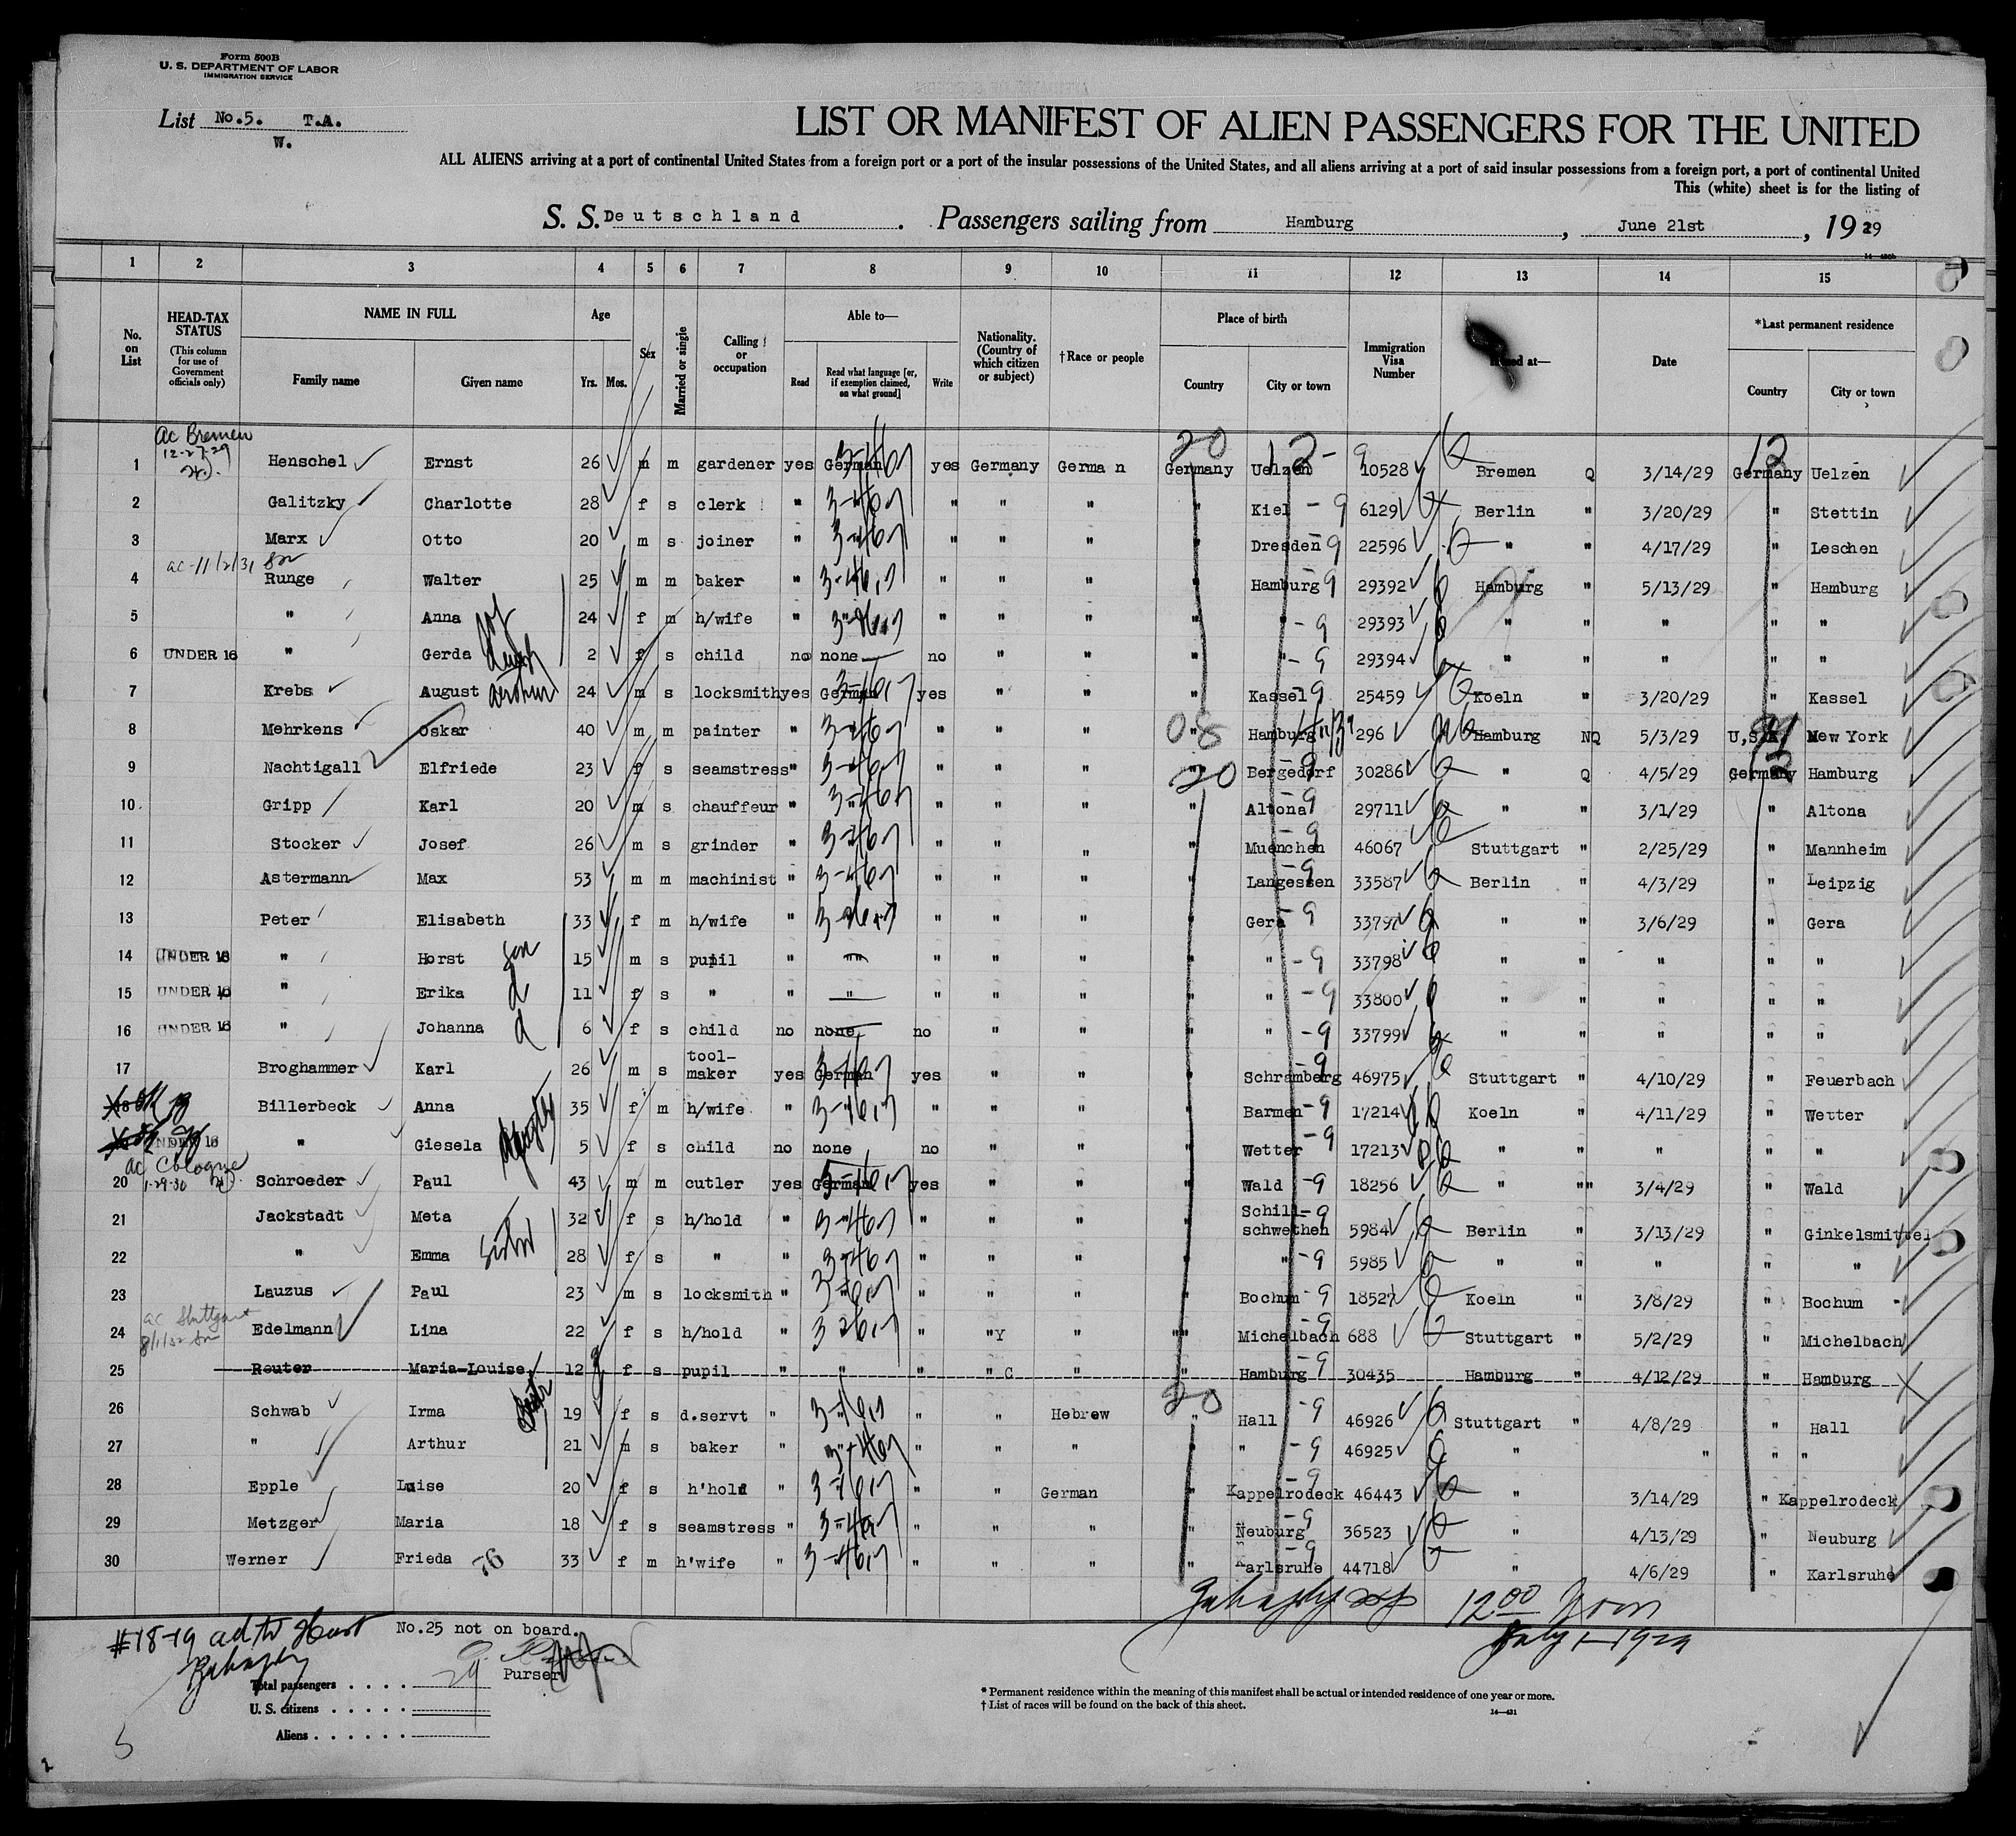 Form 500B
U. S. DEPARTMENT OF LABOR
IMMIGRATION SERVICE
List No.5. T.A.
W.
LIST OR MANIFEST OF ALIEN PASSENGERS FOR THE UNITED
ALL ALIENS arriving at a port of continental United States from a foreign port or a port of the insular possessions of the United States, and all aliens arriving at a port of said insular possessions from a foreign port, a port of continental United
This (white) sheet is for the listing of
S. S. Deutschland. Passengers sailing from Hamburg, June 21st, 1929
14—430b
1 2 3 4 5 6 7 8 9 10 11 12 13 14 15
No. on List
HEAD-TAX STATUS (This column for use of Government officials only)
NAME IN FULL Family name Given name
Age Yrs. Mos.
Sex
Married or single
Calling or occupation
Able to— Read Read what language [or, if exemption claimed, on what ground] Write
Nationality. (Country of which citizen or subject)
†Race or people
Place of birth Country City or town
Immigration Visa Number
at—
Date
*Last permanent residence Country City or town
ac Bremen
12-27-29
20 12 - 9 12
1 Henschel Ernst 26 m m gardener yes German yes Germany German Germany Uelzen 10528 Bremen Q 3/14/29 Germany Uelzen
2 Galitzky Charlotte 28 f s clerk " " " " " " Kiel - 9 6129 Berlin " 3/20/29 " Stettin
3 Marx Otto 20 m s joiner " " " " " " Dresden 9 22596 " " 4/17/29 " Leschen
ac-11/2/31
4 Runge Walter 25 m m baker " " " " " " Hamburg 9 29392 Hamburg " 5/13/29 " Hamburg
5 " Anna 24 f m h/wife " " " " " " " - 9 29393 " " " " "
6 UNDER 16 " Gerda 2 f s child no none no " " " " - 9 29394 " " " " "
7 Krebs August Arthur 24 m s locksmith yes German yes " " " Kassel 9 25459 Koeln " 3/20/29 " Kassel
8 Mehrkens Oskar 40 m m painter " " " " " " Hamburg 296 Hamburg NQ 5/3/29 U.S.A. New York
9 Nachtigall Elfriede 23 f s seamstress " " " " " 20 " Bergedorf 9 30286 " Q 4/5/29 Germany Hamburg
10 Gripp Karl 20 m s chauffeur " " " " " " Altona 9 29711 " " 3/1/29 " Altona
11 Stocker Josef 26 m s grinder " " " " " " Muenchen 9 46067 Stuttgart " 2/25/29 " Mannheim
12 Astermann Max 53 m m machinist " " " " " " Langessen 9 33587 Berlin " 4/3/29 " Leipzig
13 Peter Elisabeth 33 f m h/wife " " " " " " Gera 9 33797 " " 3/6/29 " Gera
14 UNDER 16 " Horst son 15 m s pupil " " " " " " " - 9 33798 " " " " "
15 UNDER 16 " Erika d 11 f s " " " " " " " " - 9 33800 " " " " "
16 UNDER 16 " Johanna d 6 f s child no none no " " " " - 9 33799 " " " " "
17 Broghammer Karl 26 m s tool-maker yes German yes " " " Schramberg 9 46975 Stuttgart " 4/10/29 " Feuerbach
18 Billerbeck Anna 35 f m h/wife " " " " " " Barmen - 9 17214 Koeln " 4/11/29 " Wetter
UNDER 16 " Giesela daughter 5 f s child no none no " " " Wetter - 9 17213 " " " " "
ac Cologne
1-29-30
20 Schroeder Paul 43 m m cutler yes German yes " " " Wald - 9 18256 " " 3/4/29 " Wald
21 Jackstadt Meta 32 f s h/hold " " " " " " Schill-schwethen - 9 5984 Berlin " 3/13/29 " Ginkelsmittel
22 " Emma sister 28 f s " " " " " " " " - 9 5985 " " " " "
23 Lauzus Paul 23 m s locksmith " " " " " " Bochum - 9 18527 Koeln " 3/8/29 " Bochum
ac Stuttgart
24 Edelmann Lina 22 f s h/hold " " " "Y " " Michelbach 9 688 Stuttgart " 5/2/29 " Michelbach
25 Reuter Maria-Louise 12 f s pupil " " " " C " " Hamburg - 9 30435 Hamburg " 4/12/29 " Hamburg X
26 Schwab Irma 19 f s d.servt " " " " Hebrew 20 " Hall - 9 46926 Stuttgart " 4/8/29 " Hall
27 " Arthur 21 m s baker " " " " " " " - 9 46925 " " " "
28 Epple Luise 20 f s h'hold " " " " German " Kappelrodeck - 9 46443 " 3/14/29 " Kappelrodeck
29 Metzger Maria 18 f s seamstress " " " " " " Neuburg - 9 36523 " 4/13/29 " Neuburg
30 Werner Frieda 76 33 f m h'wife " " " " " " Karlsruhe - 9 44718 " 4/6/29 " Karlsruhe
12 00 Noon
July 1—1929
#18-19
No.25 not on board.
Purser
Total passengers . . . . 29
U. S. citizens . . . . .
Aliens . . . . . .
* Permanent residence within the meaning of this manifest shall be actual or intended residence of one year or more.
† List of races will be found on the back of this sheet.
14—431
5
2